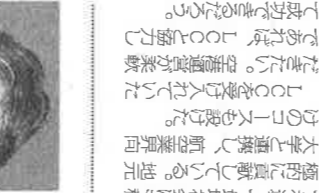 極的に貢献している。地元
大学と連携し、航空業界向
けのコースも設けた。
LCCを受け入れていた
だきたい。空港運営が柔軟
であれば、LCCと協力し
て成功できるだろう。